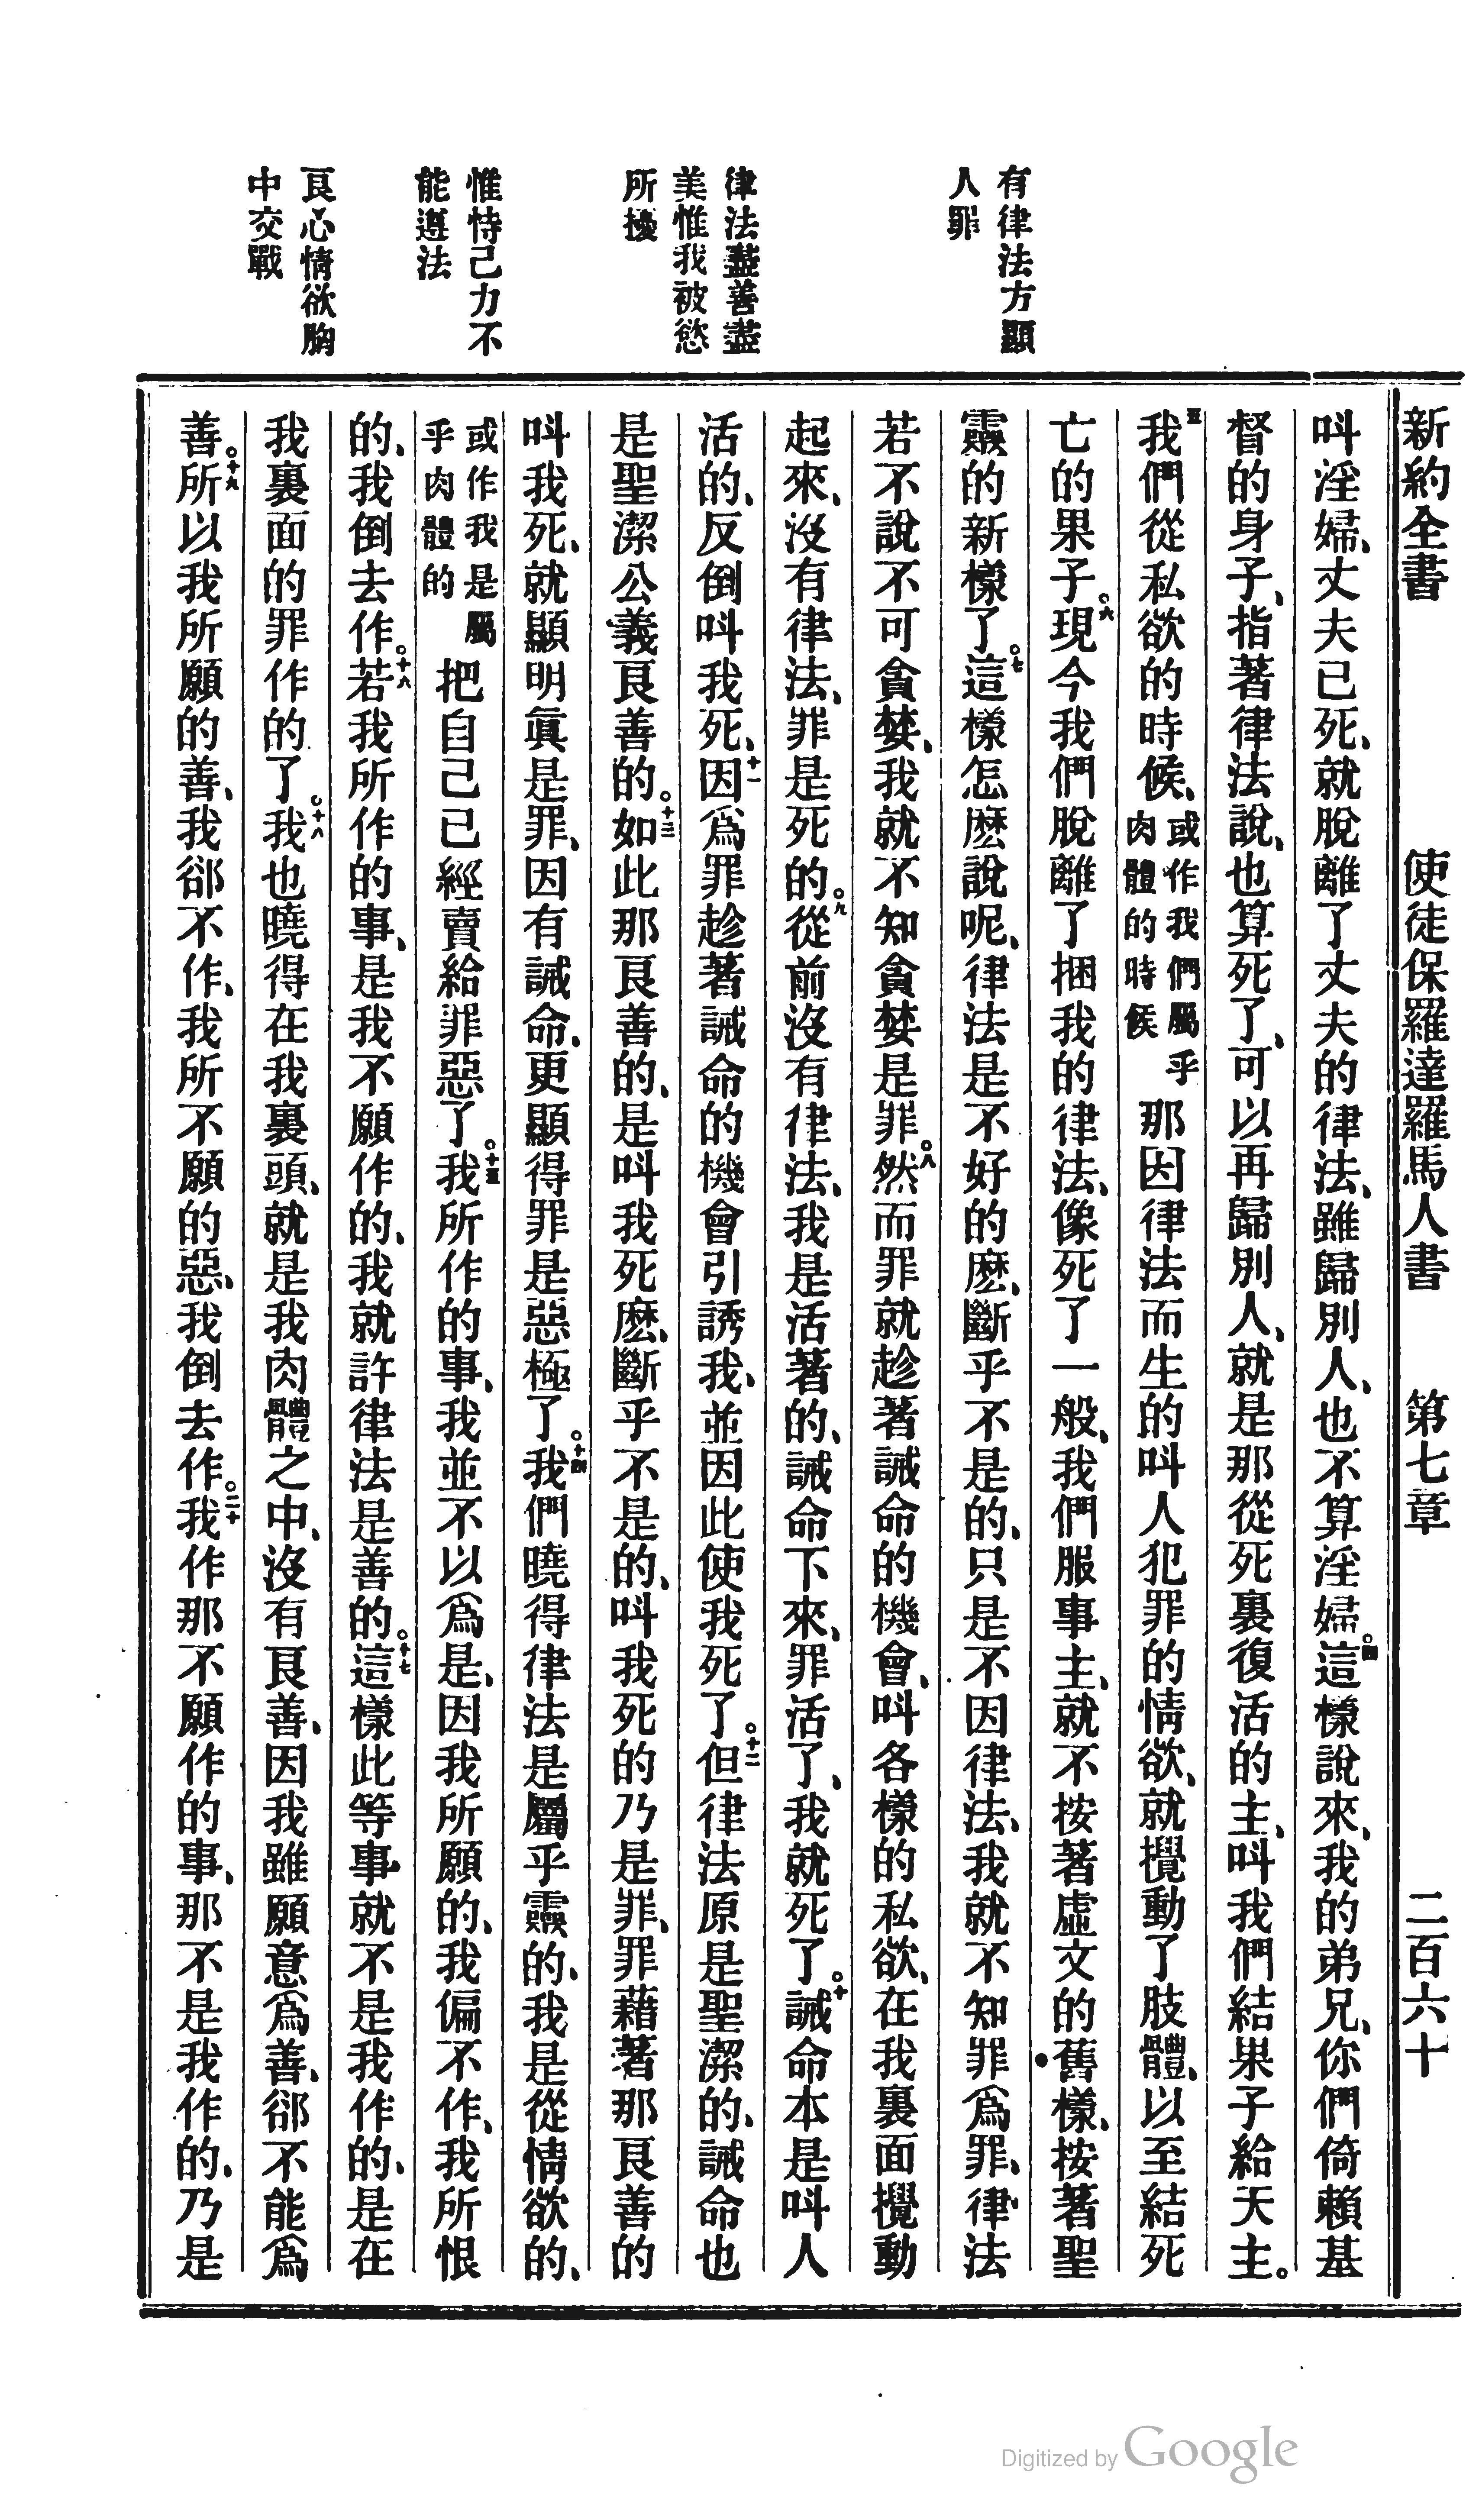 新約全書 使徒保羅達羅馬人書 第七章 二百六十
有律法方顯
人罪
律法盡善盡
美惟我被慾
所擾
惟恃己力不
能遵法
良心情欲胸
中交戰
叫淫婦、丈夫已死、就脫離了丈夫的律法、雖歸別人、也不算淫婦。四這樣說來、我的弟兄、你們倚賴基
督的身子、指著律法說、也算死了、可以再歸別人、就是那從死裏復活的主、叫我們結果子給天主。
五我們從私欲的時候、或作我們屬乎肉體的時候那因律法而生的叫人犯罪的情欲、就攪動了肢體、以至結死
亡的果子。六現今我們脫離了捆我的律法、像死了一般、我們服事主、就不按著虛文的舊樣、按著聖
靈的新樣了。七這樣怎麽說呢、律法是不好的麽、斷乎不是的、只是不因律法、我就不知罪爲罪、律法
若不說不可貪婪、我就不知貪婪是罪。八然而罪就趁著誡命的機會、叫各樣的私欲、在我裏面攪動
起來、沒有律法、罪是死的。九從前沒有律法、我是活著的、誡命下來、罪活了、我就死了。十誡命本是叫人
活的、反倒叫我死、十一因爲罪趁著誡命的機會引誘我、並因此使我死了。十二但律法原是聖潔的、誡命也
是聖潔公義良善的。十三如此那良善的、是叫我死麽、斷乎不是的、叫我死的乃是罪、罪藉著那良善的
叫我死、就顯明眞是罪、因有誡命、更顯得罪是惡極了。十四我們曉得律法是屬乎靈的、我是從情欲的、
或作我是屬乎肉體的把自己已經賣給罪惡了。十五我所作的事、我並不以爲是、因我所願的、我偏不作、我所恨
的、我倒去作。十六若我所作的事、是我不願作的、我就許律法是善的。十七這樣此等事就不是我作的、是在
我裏面的罪作的了。十八我也曉得在我裏頭、就是我肉體之中、沒有良善、因我雖願意爲善、郤不能爲
善。十九所以我所願的善、我郤不作、我所不願的惡、我倒去作。二十我作那不願作的事、那不是我作的、乃是
Digitized by Google